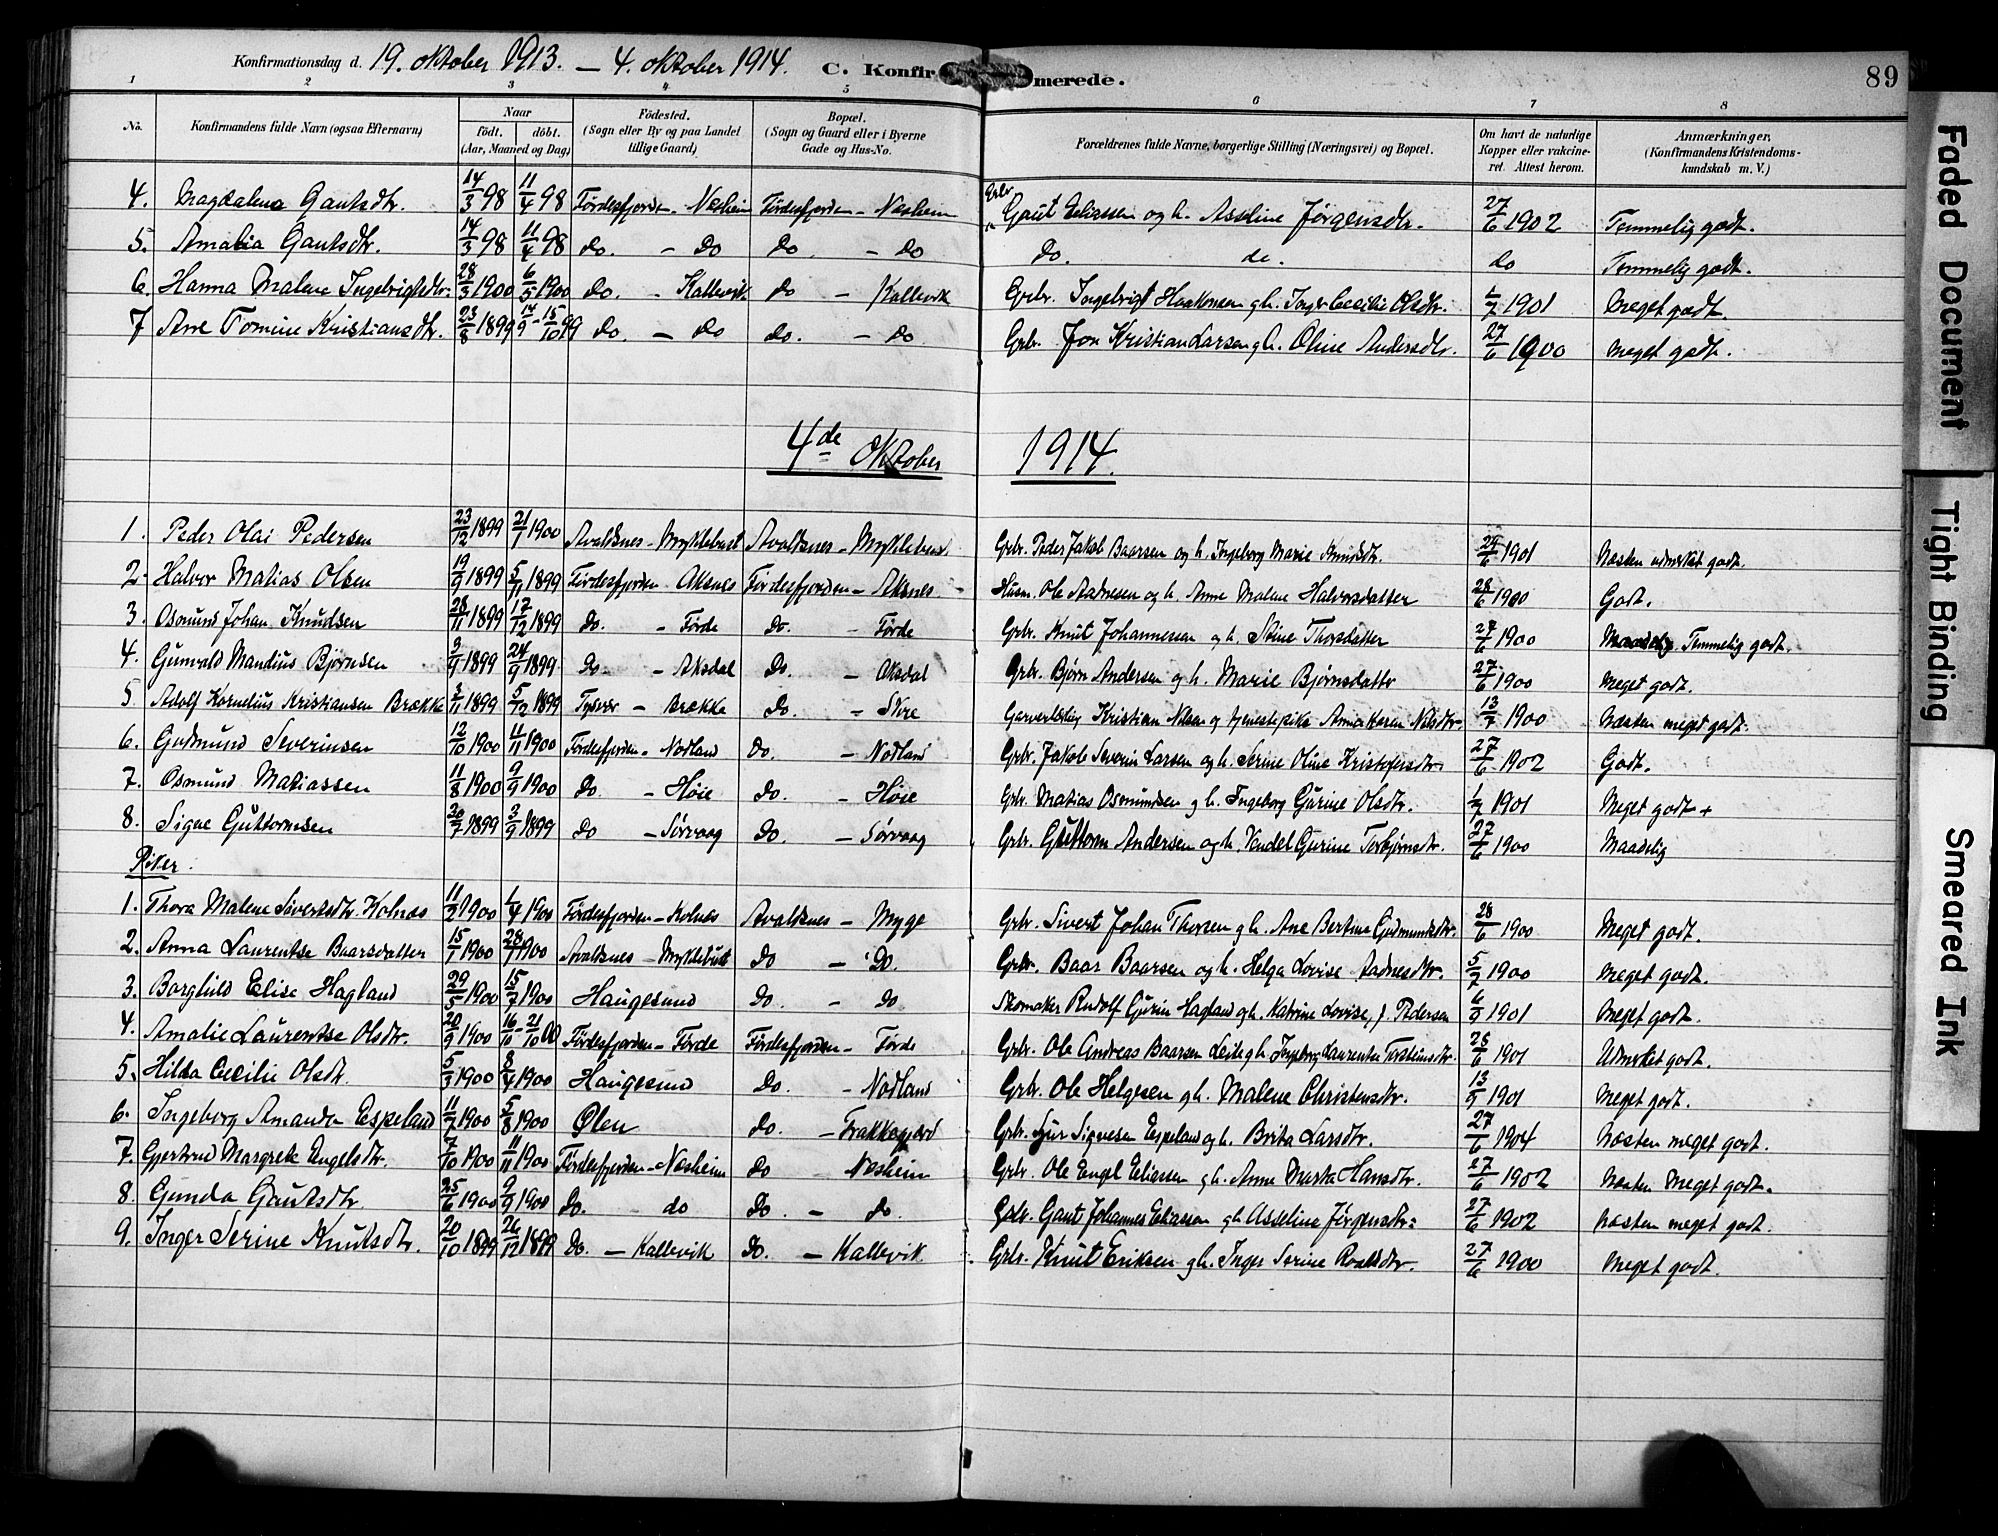 Konfirmationsdag d. 19. oktober 1913. — 4. oktober 1914. C. Konfirmerede. 89
1 2 3 4 5 6 7 8
No. Konfirmandens fulde Navn (ogsaa Efternavn) Naar født. døbt. (Aar, Maaned og Dag) Fødested. (Sogn eller By og paa Landet tillige Gaard) Bopæl. (Sogn og Gaard eller i Byerne Gade og Hus-No. Forældrenes fulde Navne, borgerlige Stilling (Næringsvei) og Bopæl. Om havt de naturlige Kopper eller vakcineret. Attest herom. Anmærkninger, (Konfirmandens Kristendomskundskab m. V.)
4. Magdalena Gautsdtr. 14/3 98 11/4 98 Førdesfjorden - Nesheim Førdesfjorden - Nesheim Grbr. Gaut Eliassen og h. Asseline Jørgensdtr. 27/6 1902 Temmelig godt.
5. Amalia Gautsdtr. 14/3 98 11/4 98 do. - Do do. - do Do. do. do Temmelig godt.
6. Hanna Malene Ingebrigtsdtr. 28/3 1900 6/5 1900 Do. - Kallevik do - Kallevik Grbr. Ingebrigt Haakonsen g h. Inger Cecilie Olsdtr. 1/7 1901 Meget godt.
7 Ane Tomine Kristiansdtr. 23/8 1899 14/9 - 15/10 99 do. - do do. - do Grbr. Jon Kristian Larsen g h. Oline Andersdtr. 27/6 1900 Meget godt.
4de Oktober 1914.
1. Peder Olai Pedersen 23/12 1899 21/1 1900 Avaldsnes - Myklebust Avaldsnes - Myklebust Grbr. Peder Jakob Baarsen og h. Ingeborg Marie Knudsdtr. 29/6 1901 Næsten udmerket godt.
2. Halvor Matias Olsen 19/9 1899 5/11 1899 Førdesfjorden - Aksnes Førdesfjorden - Aksnes Husm. Ole Aadnesen og h. Anne Malene Halvorsdatter 28/6 1900 Godt.
3. Osmund Johan Knudsen 28/11 1899 17/12 1899 Do. - Førde Do. - Førde Grbr. Knut Johannesen og h. Stine Thorsdatter 27/6 1900 Temmelig godt.
4. Gunvald Mandius Bjørnsen 3/9 1899 24/9 1899 Do - Aksdal Do. - Aksdal Grbr. Bjørn Andersen og h. Marie Bjørnsdatter 27/6 1900 Meget godt.
5 Adolf Kornelius Kristiansen Brække 3/11 1899 5/12 1899 Tysvær - Brække Do. - Skre Kristian Nilsen og tjenestepike Anna Karen Nilsdtr. 13/7 1900 Næsten meget godt.
6. Gudmund Severinsen 12/10 1900 11/11 1900 Førdesfjorden - Nodland Do. - Nodland Grbr. Jakob Severin Larsen og h. Serine Oline Kristofersdtr. 27/6 1902 Godt.
7. Osmund Matiassen 11/8 1900 9/9 1900 Do. - Høie Do. - Høie Grbr. Matias Osmundsen g h. Ingeborg Gurine Olsdtr. 1/7 1901 Meget godt +
8. Signe Guttormsen 20/7 1899 3/9 1899 Do - Sørvaag Do - Sørvaag Grbr. Guttorm Andersen og h. Vendel Gurine Torbjørnsdtr. 27/6 1900 Maadelig
Piker.
1. Thora Malene Sivertsdtr. Kolnæs 11/2 1900 1/4 1900 Førdesfjorden - Kolnes Avaldsnes - Myge Grbr. Sivert Johan Thorsen g h. Ane Bertine Gudmundsdtr. 28/6 1900 Meget godt.
2. Anna Laurentse Baarsdatter 15/7 1900 28/7 1900 Avaldsnes - Myklebust Do - Do. Grbr. Baar Baarsen og h. Helga Lovise Aadnesdtr. 5/7 1900 Meget godt.
3. Borghild Elise Hagland 29/5 1900 15/7 1900 Haugesund Do. - Do Skomaker Rudolf Gurin Hagland og h. Katrine Lovise, f. Pedersen 6/9 1901 Meget godt.
4. Amalie Laurentse Olsdtr. 20/9 1900 16/10 - 21/10 00 Førdesfjorden - Førde Førdesfjorden - Førde Grbr. Ole Andreas Baarsen Leite g h. Ingeborg Laurentse Torsteinsdtr. 28/6 1901 Udmerket godt.
5. Hilda Cecilie Olsdtr. 5/3 1900 8/4 1900 Haugesund Do - Nodland Grbr. Ole Helgesen g h. Malene Christensdtr. 13/9 1901 Meget godt.
6. Ingeborg Amanda Espeland 11/7 1900 5/8 1900 Ølen do. - Frakkagjerd Grbr. Sjur Signesen Espeland og h. Brita Larsdtr. 27/6 1904 Næsten meget godt.
7. Gjertrud Margrete Engelsdtr. 7/10 1900 11/11 1900 Førdesfjorden - Nesheim Do - Nesheim Grbr. Ole Engel Eliassen g h. Anne Marta Hansdtr. 27/6 1902 Næsten meget godt.
8. Gunda Gautsdtr 25/6 1900 9/9 1900 Do. do Do. - do. Grbr. Gaut Johannes Eliassen g h. Asseline Jørgensdtr. 27/6 1902 Næsten meget godt.
9. Inger Serine Knutsdtr. 20/10 1899 26/12 1899 Do. - Kallevik Do. - Kallevik Grbr. Knut Eriksen g h. Inger Serine Roaldsdtr. 27/6 1900 Meget godt.
Faded Document
Tight Binding
Smeared Ink